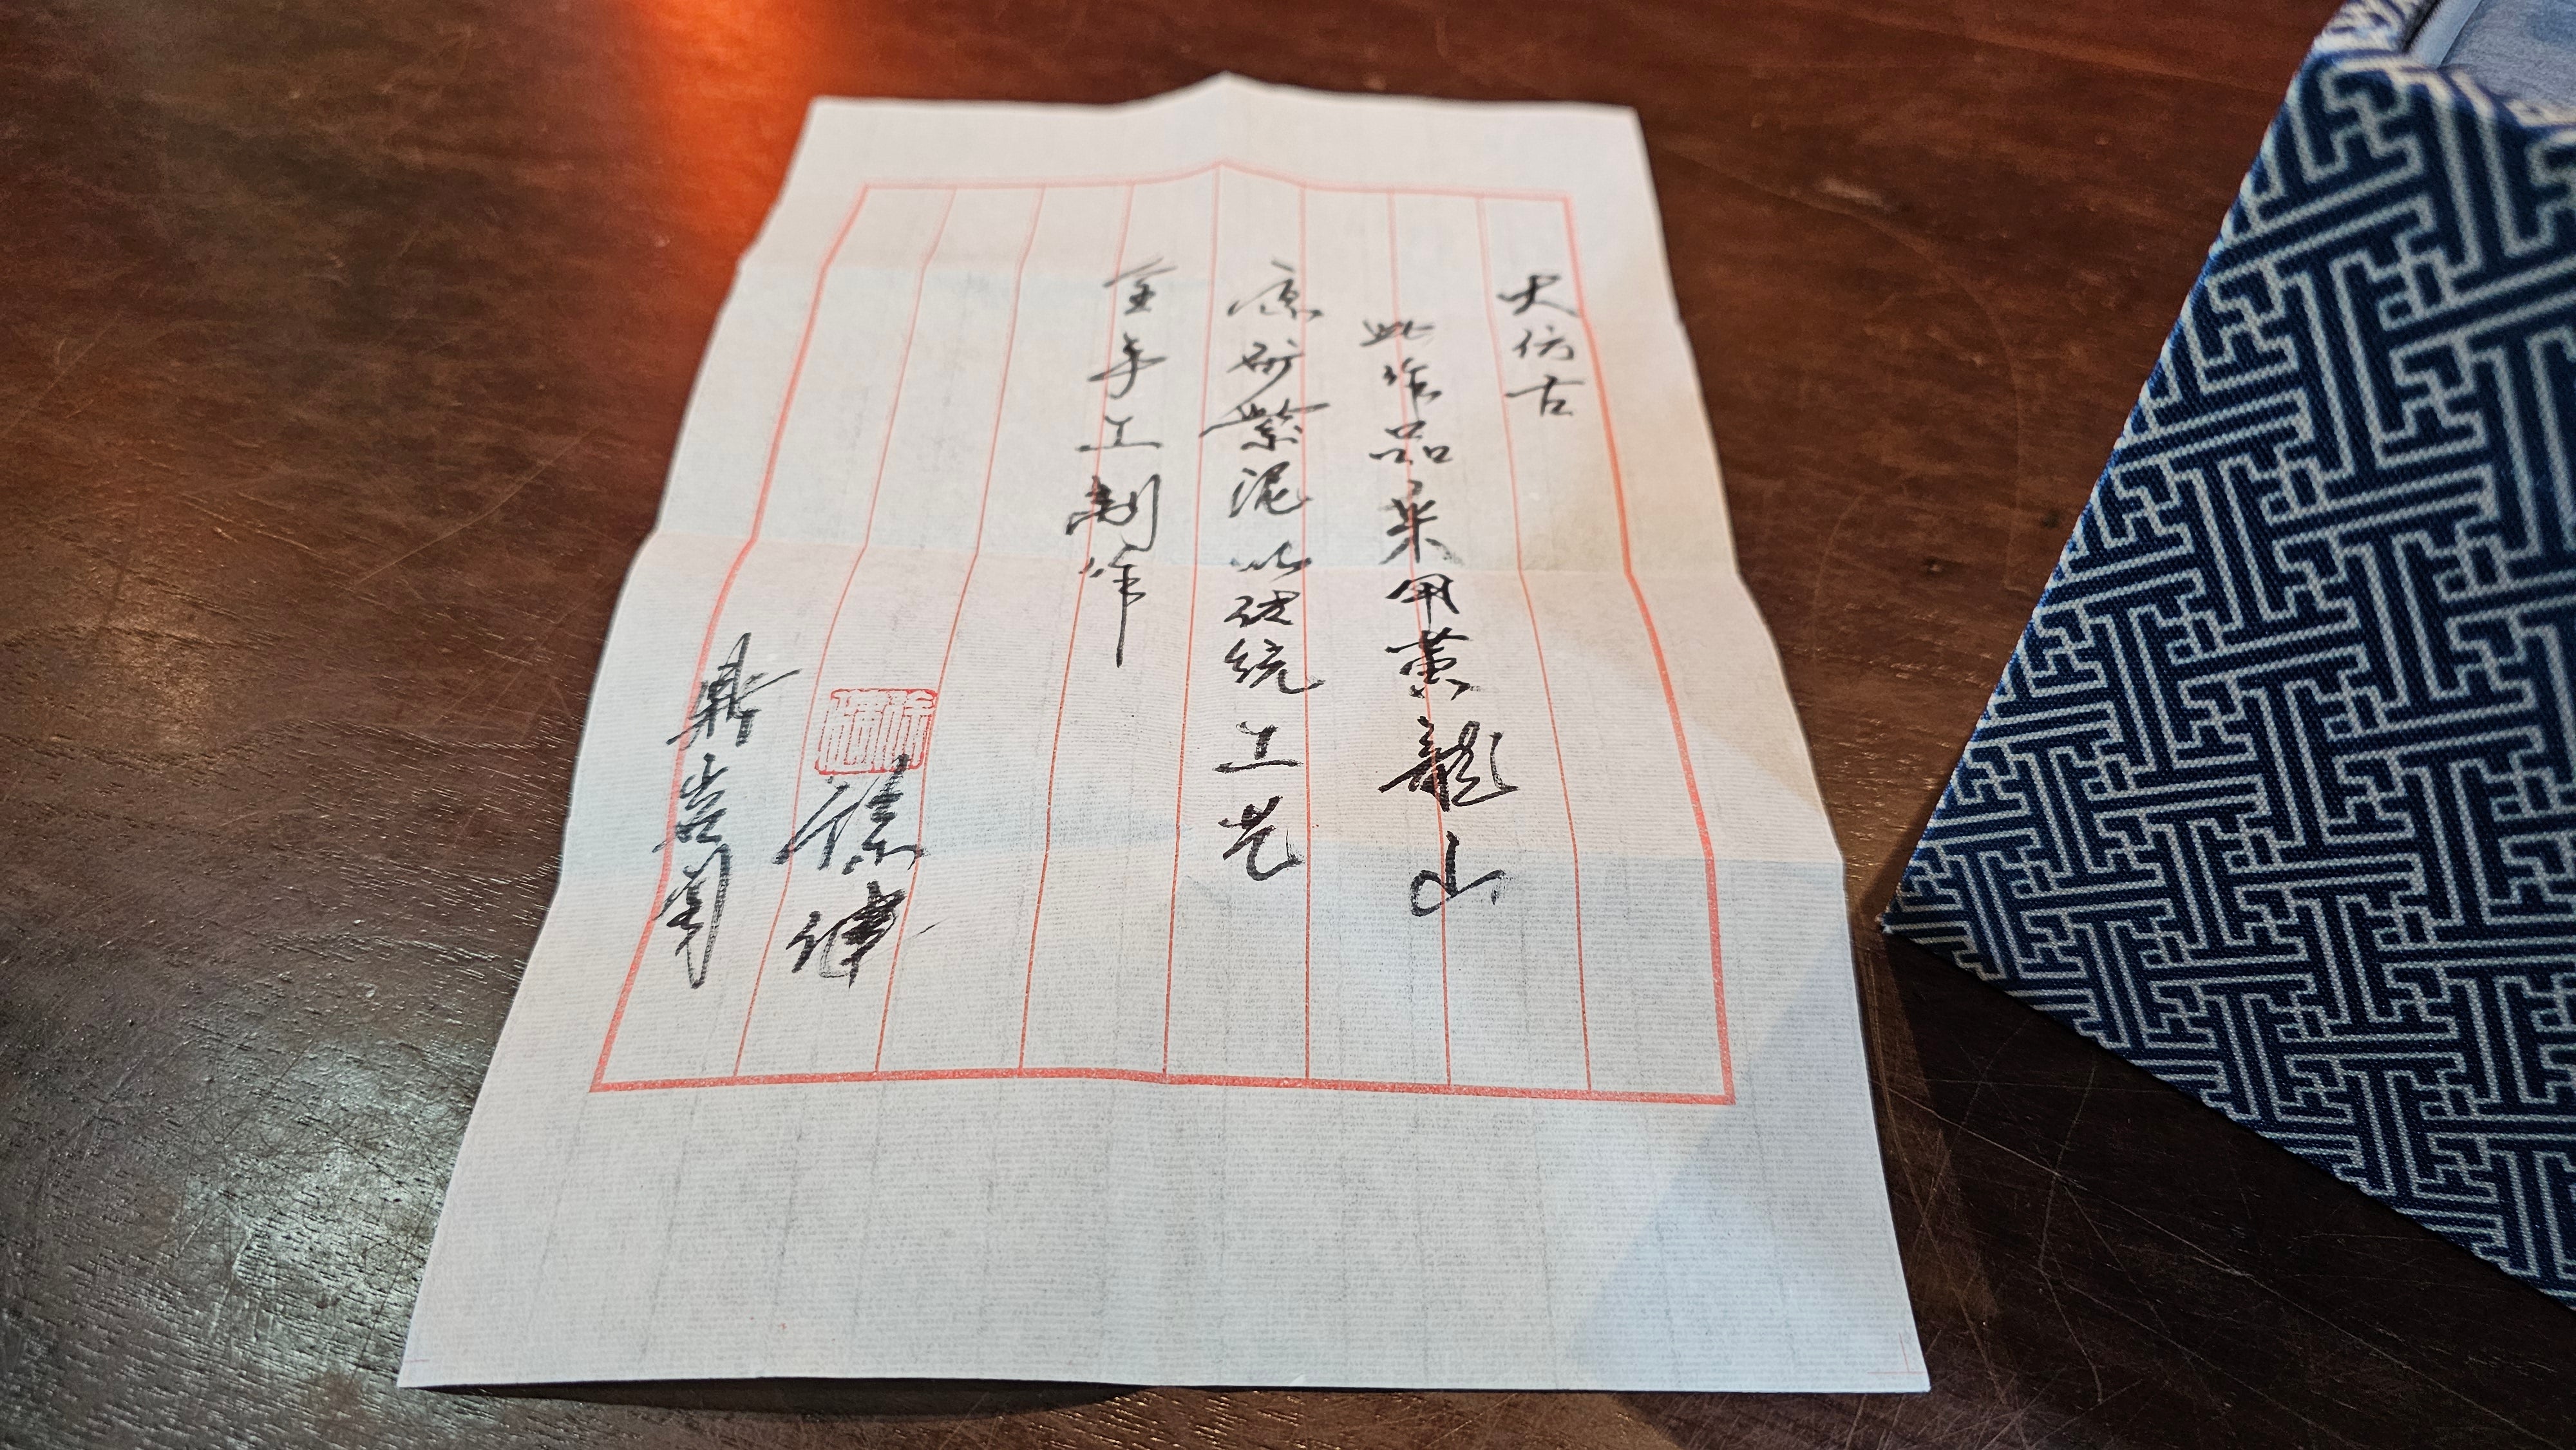 大仿古
此作品采用黄龍山
原矿紫泥以传统工艺
全手工制作
徐